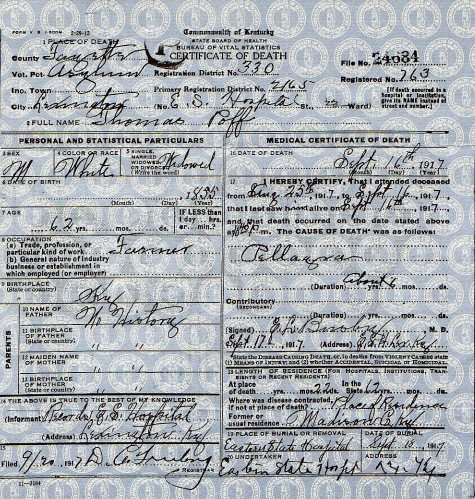 FORM V S 1-500M 2-29-12
Commonwealth of Kentucky
STATE BOARD OF HEALTH
BUREAU OF VITAL STATISTICS
CERTIFICATE OF DEATH
1 PLACE OF DEATH
County Fayette
File No. 24634
Vot. Pct Asylum Registration District No. 330
Registered No. 763
Inc. Town Primary Registration District No. 2165
City Lexington (No. E. S. Hospital St., Ward)
[If death occurred in a hospital or institution, give its NAME instead of street and number.]
2 FULL NAME Thomas Poff
PERSONAL AND STATISTICAL PARTICULARS
3 SEX M
4 COLOR OR RACE White
5 SINGLE, MARRIED WIDOWED OR DIVORCED (Write the word) Widowed
6 DATE OF BIRTH
1855
(Month) (Day) (Year)
7 AGE
62 yrs. mos. ds.
IF LESS than 1 day, hrs. or min.?
8 OCCUPATION
(a) Trade, profession, or particular kind of work Farmer
(b) General nature of industry business or establishment in which employed (or employer)
9 BIRTHPLACE (State or country) Ky
PARENTS
10 NAME OF FATHER No History
11 BIRTHPLACE OF FATHER (State or country)
12 MAIDEN NAME OF MOTHER
13 BIRTHPLACE OF MOTHER (State or country)
14 THE ABOVE IS TRUE TO THE BEST OF MY KNOWLEDGE
(Informant) Records E. S. Hospital
(Address) Lexington Ky
15
Filed 9/20, 1917
Registrar
11-3184
MEDICAL CERTIFICATE OF DEATH
16 DATE OF DEATH
Sept 16th, 1917
(Month) (Day) (Year)
17 I HEREBY CERTIFY, That I attended deceased
from Aug 25th, 1917, to Sept 16, 1917
that I last saw him alive on Sept 16th, 1917,
and that death occurred on the date stated above
at m. The CAUSE OF DEATH* was as follows:
Pellagra
About 6
(Duration) yrs. mos. ds.
Contributory
(Secondary)
(Duration) yrs. mos. ds.
(Signed) M. D.
Sept 17, 1917 (Address)
*State the DISEASE CAUSING DEATH, or, in deaths from VIOLENT CAUSES state (1) MEANS OF INJURY; and (2) whether ACCIDENTAL, SUICIDAL or HOMICIDAL.
18 LENGTH OF RESIDENCE (FOR HOSPITALS, INSTITUTIONS, TRANSIENTS OR RECENT RESIDENTS)
At place of death yrs. mos. ds. In the State 62 yrs. mos. ds.
Where was disease contracted, if not at place of death? Place of Residence
Former or usual residence Madison Co Ky
19 PLACE OF BURIAL OR REMOVAL Eastern State Hospital
DATE OF BURIAL Sept 1917
20 UNDERTAKER Eastern State Hospt
ADDRESS Lex Ky